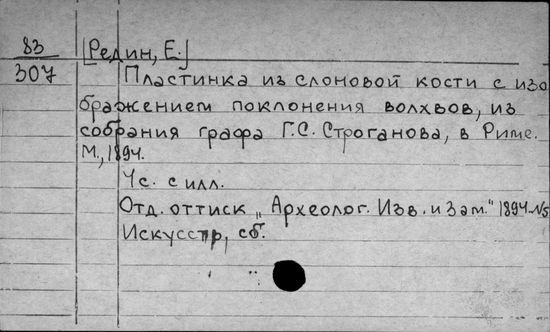 83
307
[Редин, Е.]
Пластинка из слоновой кости с изо
бражением поклонения волхвов, из
собрания графа Г.С. Строганова, в Риме.
М., 1894.
4с. с илл.
Отд. оттиск „Археолог. Изв. и Зам." 1894 №5
Искусств, сб.